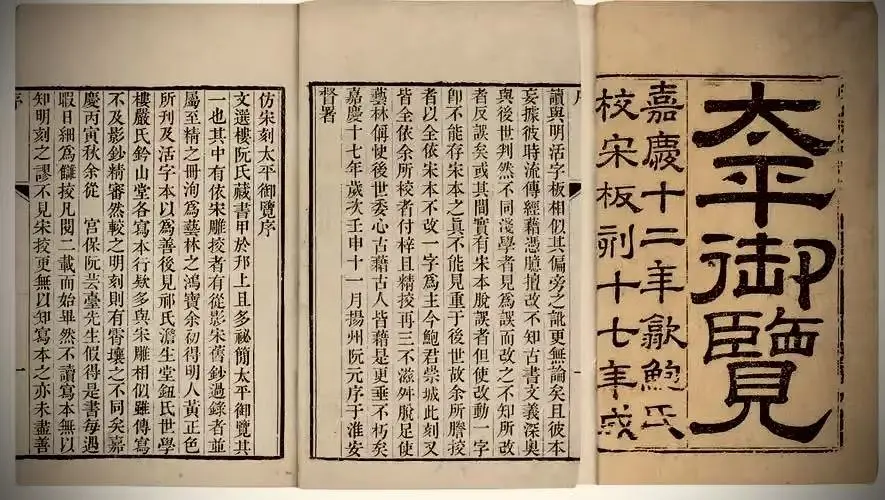 太平御覽
嘉慶十二年歙鮑氏
校宋板刻十七年成
讀與明活字板相似其偏旁之訛更無論矣且彼本
妄據彼時流傳經藉憑臆擅改不知古書文義深奧
與後世判然不同淺學者見爲誤而改之不知所改
者反誤矣或其間實有宋本脫誤者但使改動一字
卽不能存宋本之真不能見重于後世故余所謄挍
者以全依宋本不改一字爲主今鮑君崇城此刻又
皆全依余所挍者付梓且精挍再三不滋舛脫足使
藝林稱快後世委心古藉古人皆藉是更垂不朽矣
嘉慶十七年歲次壬申十一月揚州阮元序于淮安
督署
仿宋刻太平御覽序
文選樓阮氏藏書甲於邗上且多祕簡太平御覽其
一也其中有依宋雕挍者有從影宋舊鈔過錄者並
屬至精之冊洵爲藝林之鴻寶余初得明人黃正色
所刊及活字本以爲善後見祁氏澹生堂鈕氏世學
樓嚴氏鈐山堂各寫本行欵多與宋雕相似雖傳寫
不及影鈔精審然較之明刻則有霄壤之不同矣嘉
慶丙寅秋余從 宮保阮芸臺先生假得是書每遇
暇日細爲讎挍凡閱二載而始畢然不讀寫本無以
知明刻之謬不見宋挍更無以知寫本之亦未盡善
序
一